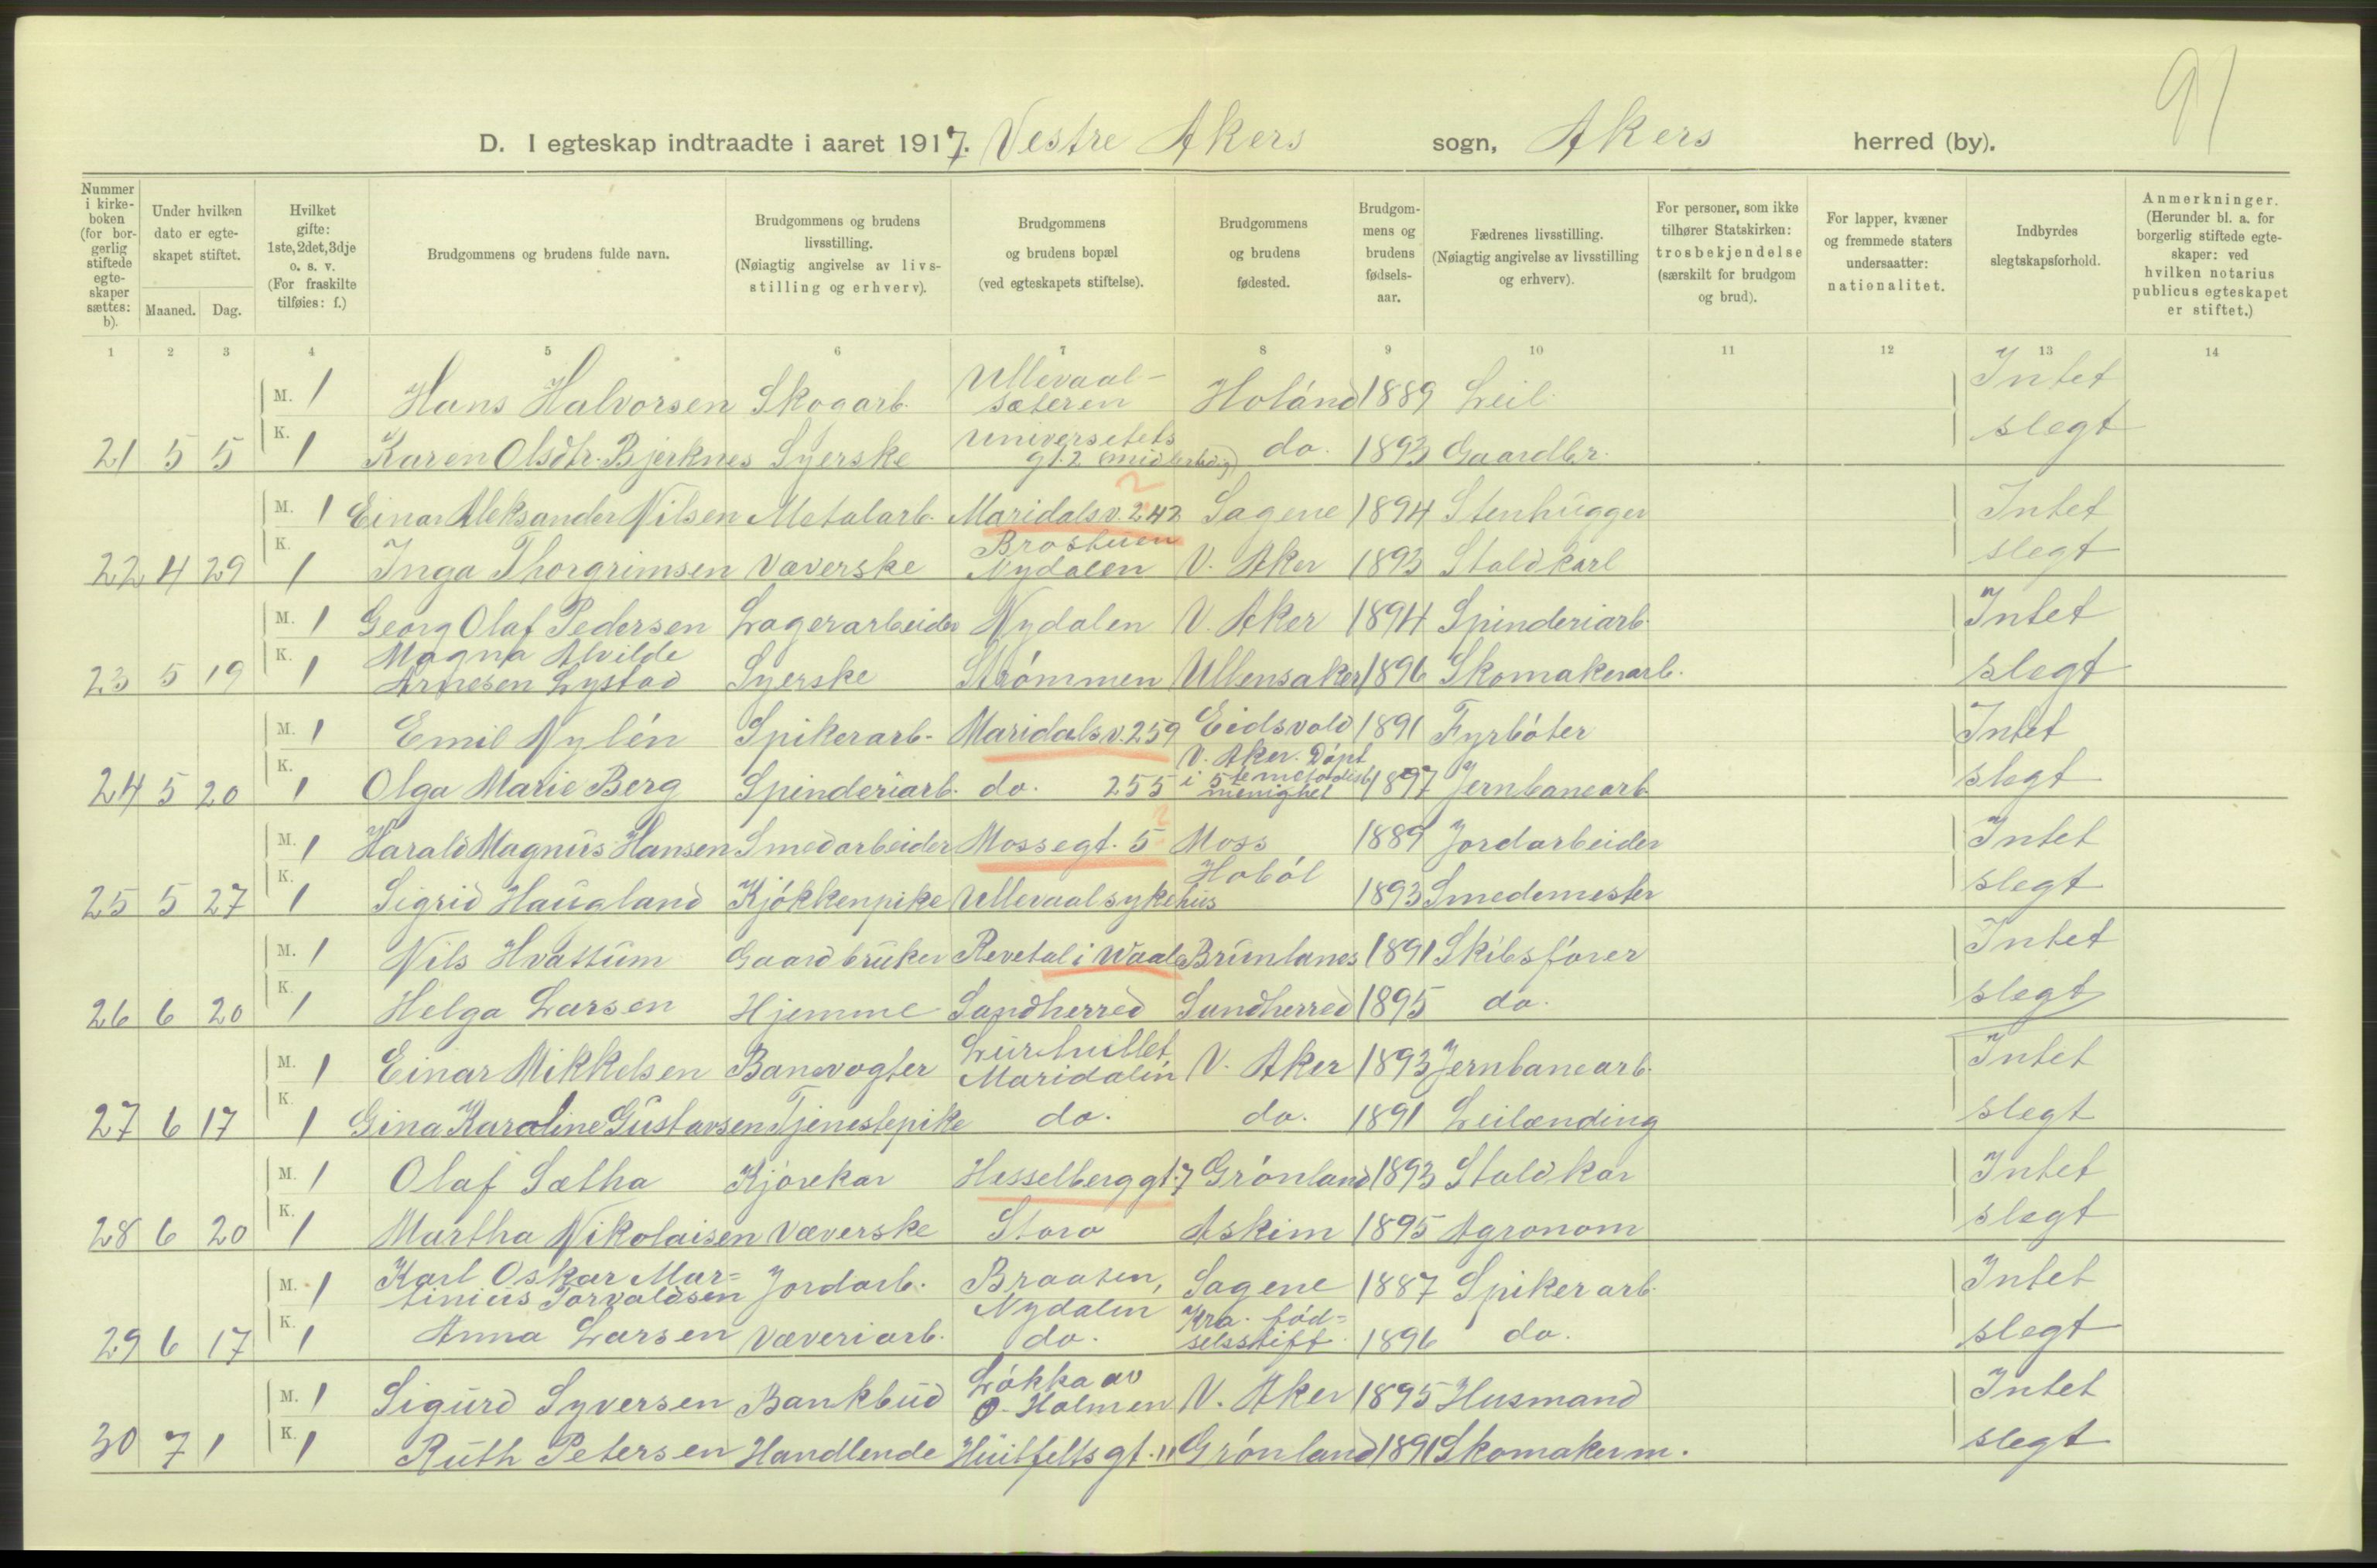 91
D. I egteskap indtraadte i aaret 1917. Vestre Akers sogn, Akers herred (by).
Nummer i kirke-boken (for bor-gerlig stiftede egte-skaper sættes: b).
Under hvilken dato er egte-skapet stiftet.
Maaned. Dag.
Hvilket gifte: 1ste, 2det, 3dje o. s. v. (For fraskilte tilføies: f.)
Brudgommens og brudens fulde navn.
Brudgommens og brudens livsstilling. (Nøiagtig angivelse av livs-stilling og erhverv).
Brudgommens og brudens bopæl (ved egteskapets stiftelse).
Brudgommens og brudens fødested.
Brudgom-mens og brudens fødsels-aar.
Fædrenes livsstilling. (Nøiagtig angivelse av livsstilling og erhverv).
For personer, som ikke tilhører Statskirken: trosbekjendelse (særskilt for brudgom og brud).
For lapper, kvæner og fremmede staters undersaatter: nationalitet.
Indbyrdes slegtskapsforhold.
Anmerkninger. (Herunder bl. a. for borgerlig stiftede egte-skaper: ved hvilken notarius publicus egteskapet er stiftet.)
1 2 3 4 5 6 7 8 9 10 11 12 13 14
M. 1 Hans Halvorsen Skogarb. Ullevaal-sæteren Holánd 1889 Leil. Intet
21 5 5 K. 1 Karen Olsdtr. Bjerknes Syerske Universitets gt. 2 (midlertidig) do. 1893 Gaardbr. slegt
M. 1 Einar Aleksander Nilsen Metalarb. Maridalsv. 242 Sagene 1894 Stenhugger Intet
22 4 29 K. 1 Inga Thorgrimsen Væverske Brostuen Nydalen V. Aker 1893 Staldkarl slegt
M. 1 Georg Olaf Pedersen Lagerarbeider Nydalen V. Aker 1894 Spinderiarb. Intet
23 5 19 K. 1 Magna Alvilde Arnesen Lystad Syerske Strømmen Ullensaker 1896 Skomakerarb. slegt
M. 1 Emil Nylén Spikerarb. Maridalsv. 259 Eidsvold 1891 Fyrbóter Intet
24 5 20 K. 1 Olga Marie Berg Spinderiarb. do. 255 V. Aker. Dópt i 5te metodist menighet 1897 Jernbanearb. slegt
M. 1 Harald Magnus Hansen Smedarbeider Mossegt. 5 Moss 1889 Jordarbeider Intet
25 5 27 K. 1 Sigrid Haugland Kjókkenpike Ullevaal sykehus Hoból 1893 Smedemester slegt
M. 1 Nils Hvattum Gaardbruker Revetal i Waale Brunlanes 1891 Skibsfórer Intet
26 6 20 K. 1 Helga Larsen Hjemme Sandherred Sandherred 1895 do. slegt
M. 1 Einar Mikkelsen Banevogter Maridalen V. Aker 1893 Jernbanearb. Intet
27 6 17 K. 1 Gina Karoline Gustavsen Tjenestepike do. do. 1891 Leilænding slegt
M. 1 Olaf Sætha Kjórekar Hesselberggt. 7 Grónland 1893 Staldkar Intet
28 6 20 K. 1 Martha Nikolaisen Væverske Storo Askim 1895 Agronom slegt
M. 1 Karl Oskar Mar=tinius Torvaldsen Jordarb. Braaten, Nydalen Sagene 1887 Spikerarb. Intet
29 6 17 K. 1 Anna Larsen Væveriarb. do. Kra. fód=selsstift. 1896 do. slegt
M. 1 Sigurd Syversen Bankbud Lókka av Ø. Holmen V. Aker 1895 Husmand Intet
30 7 1 K. 1 Ruth Petersen Handlende Huitfelts gt. 11 Grónland 1891 Skomakerm. slegt